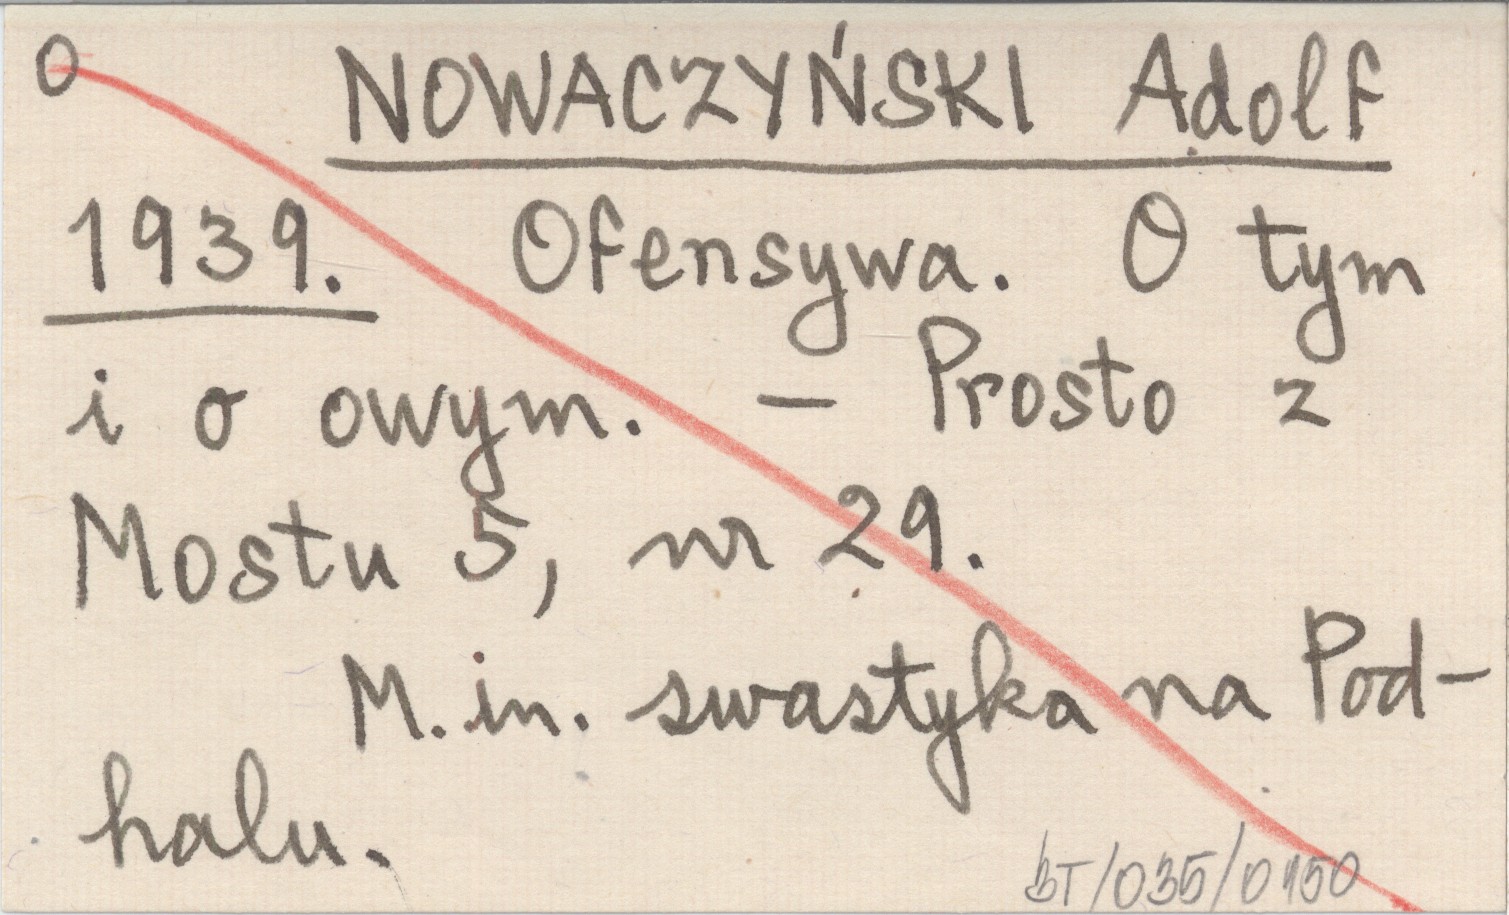 O NOWACZYŃSKI Adolf
1939. Ofensywa. O tym
i o owym. – Prosto z
Mostu 5, nr 29.
M. in. swastyka na Pod-
halu.
BT/035/0150